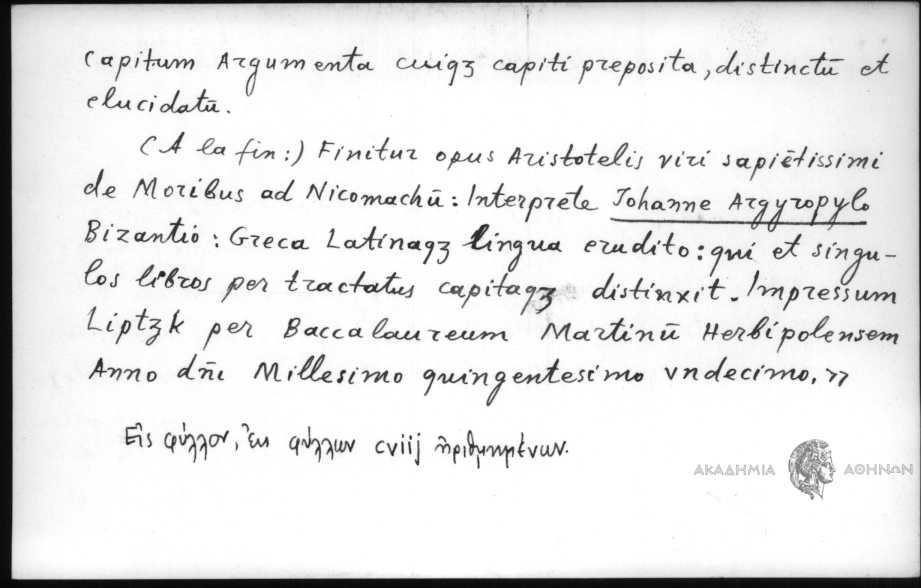 Capitum Argumenta cuiqꝫ capiti preposita, distinctū et
elucidatū.
(A la fin:) Finitur opus Aristotelis viri sapiētissimi
de Moribus ad Nicomachū: Interprete Johanne Argyropylo
Bizantio: Greca Latinaqꝫ lingua erudito: qui et singu-
los libros per tractatus capitaqꝫ distinxit. Impressum
Liptzk per Baccalaureum Martinū Herbipolensem
Anno dñi Millesimo quingentesimo vndecimo. »
Εἰς φύλλον, ἐκ φύλλων cviij ἠριθμημένων.
ΑΚΑΔΗΜΙΑ ΑΘΗΝΩΝ